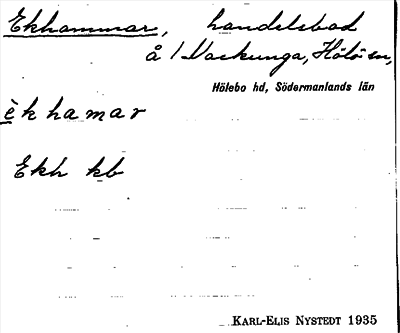 Ekhammar, handelsbod
å 1 Vackunga, Hölö sn,
Hölebo hd, Södermanlands län
èkhamar
Ekh kb
KARL-ELIS NYSTEDT 1935